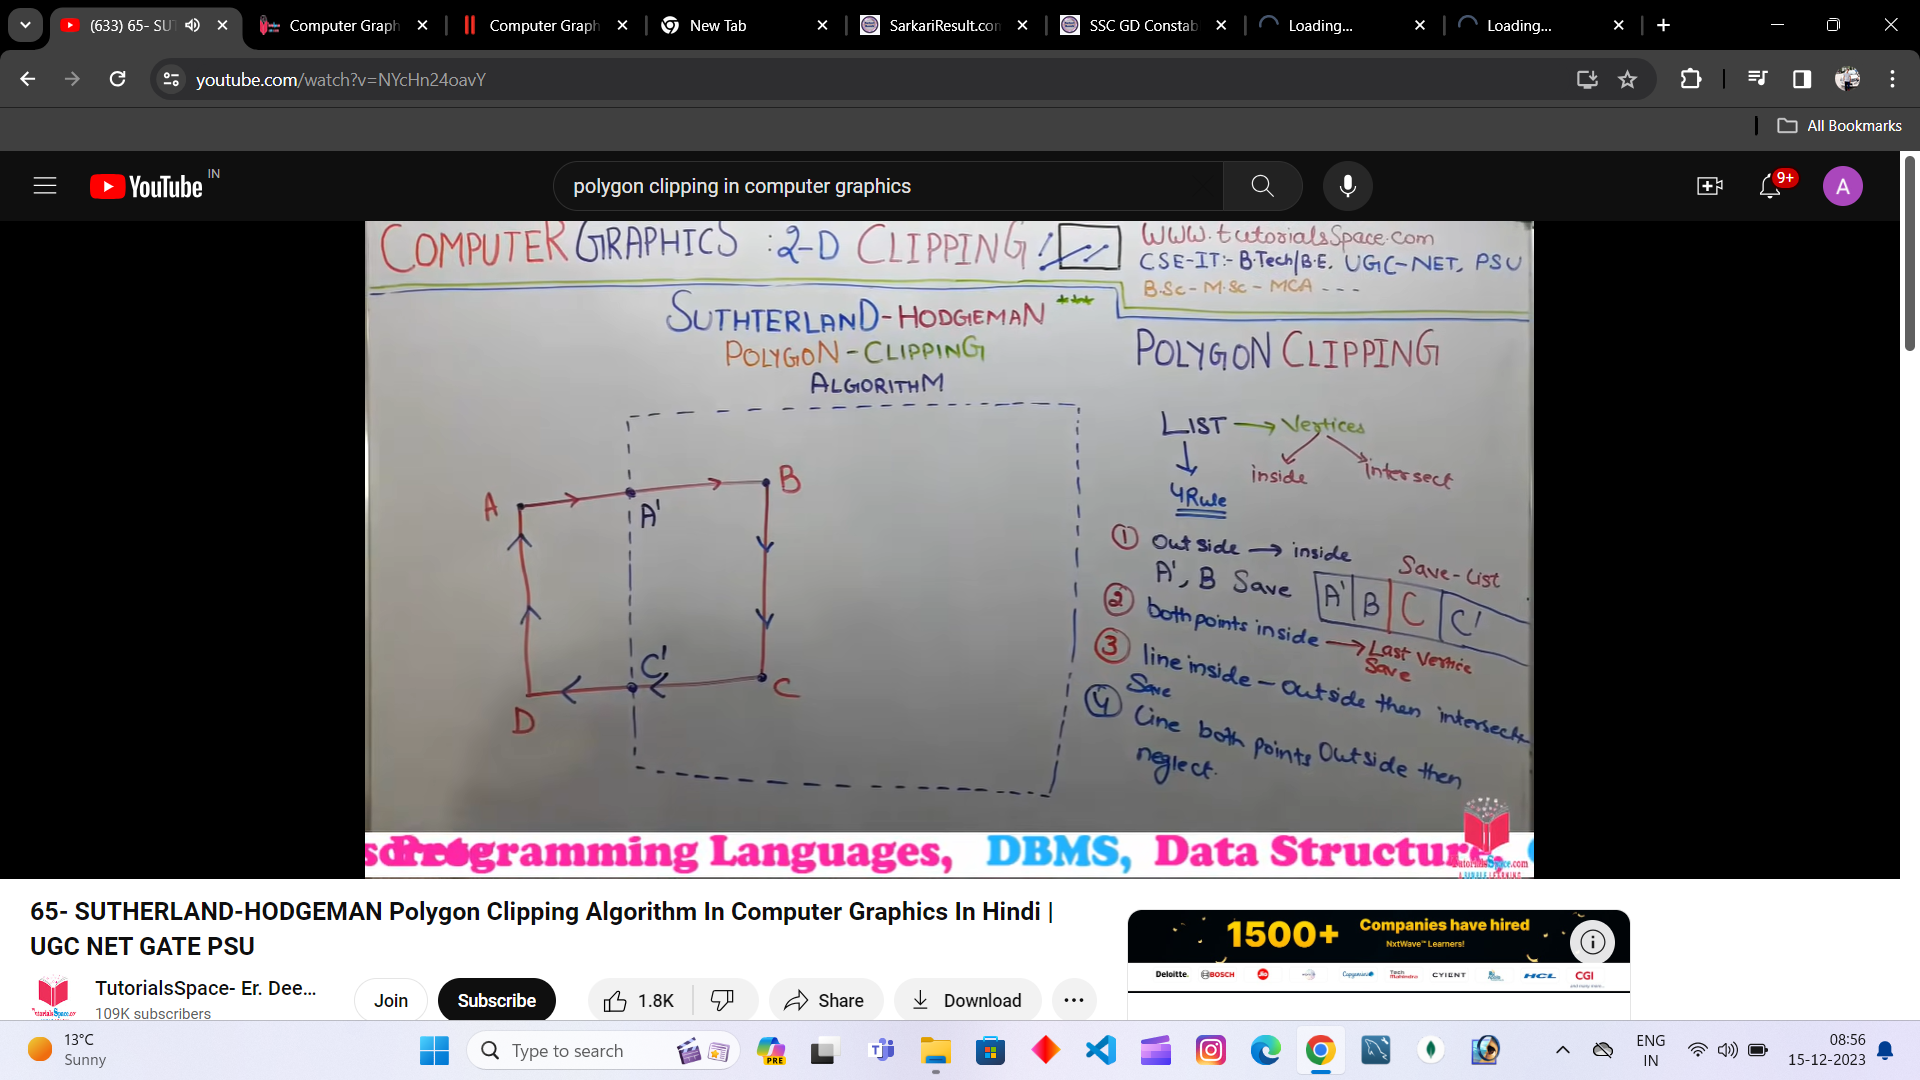 (633) 65- SUT
Computer Graph
Computer Graph
New Tab
SarkariResult.con
SSC GD Constab
Loading...
Loading...
youtube.com/watch?v=NYcHn24oavY
All Bookmarks
YouTube IN
polygon clipping in computer graphics
9+
A
COMPUTER GRAPHICS : 2-D CLIPPING
WWW.tutorialsSpace.com
CSE-IT:- B.Tech/B.E, UGC-NET, PSU
B.Sc - M.Sc - MCA - - - -
SUTHTERLAND-HODGEMAN ***
POLYGON-CLIPPING
ALGORITHM
POLYGON CLIPPING
LIST → Vertices
inside intersect
4 Rule
A
A'
B
C'
C
D
① Outside → inside
A', B Save
Save-List
A' B C C'
② both points inside → Last Vertice
Save
③ line inside - Outside then intersects
Save
④ Line both points Outside then
neglect.
Programming Languages, DBMS, Data Structure,
TutorialsSpace.com
65- SUTHERLAND-HODGEMAN Polygon Clipping Algorithm In Computer Graphics In Hindi |
UGC NET GATE PSU
TutorialsSpace- Er. Dee...
109K subscribers
Join
Subscribe
1.8K
Share
Download
1500+ Companies have hired
NxtWave™ Learners!
Deloitte. BOSCH Jio Capgemini Tech Mahindra CYIENT HCL CGI
and many more...
13°C
Sunny
Type to search
PRE
ENG
IN
08:56
15-12-2023